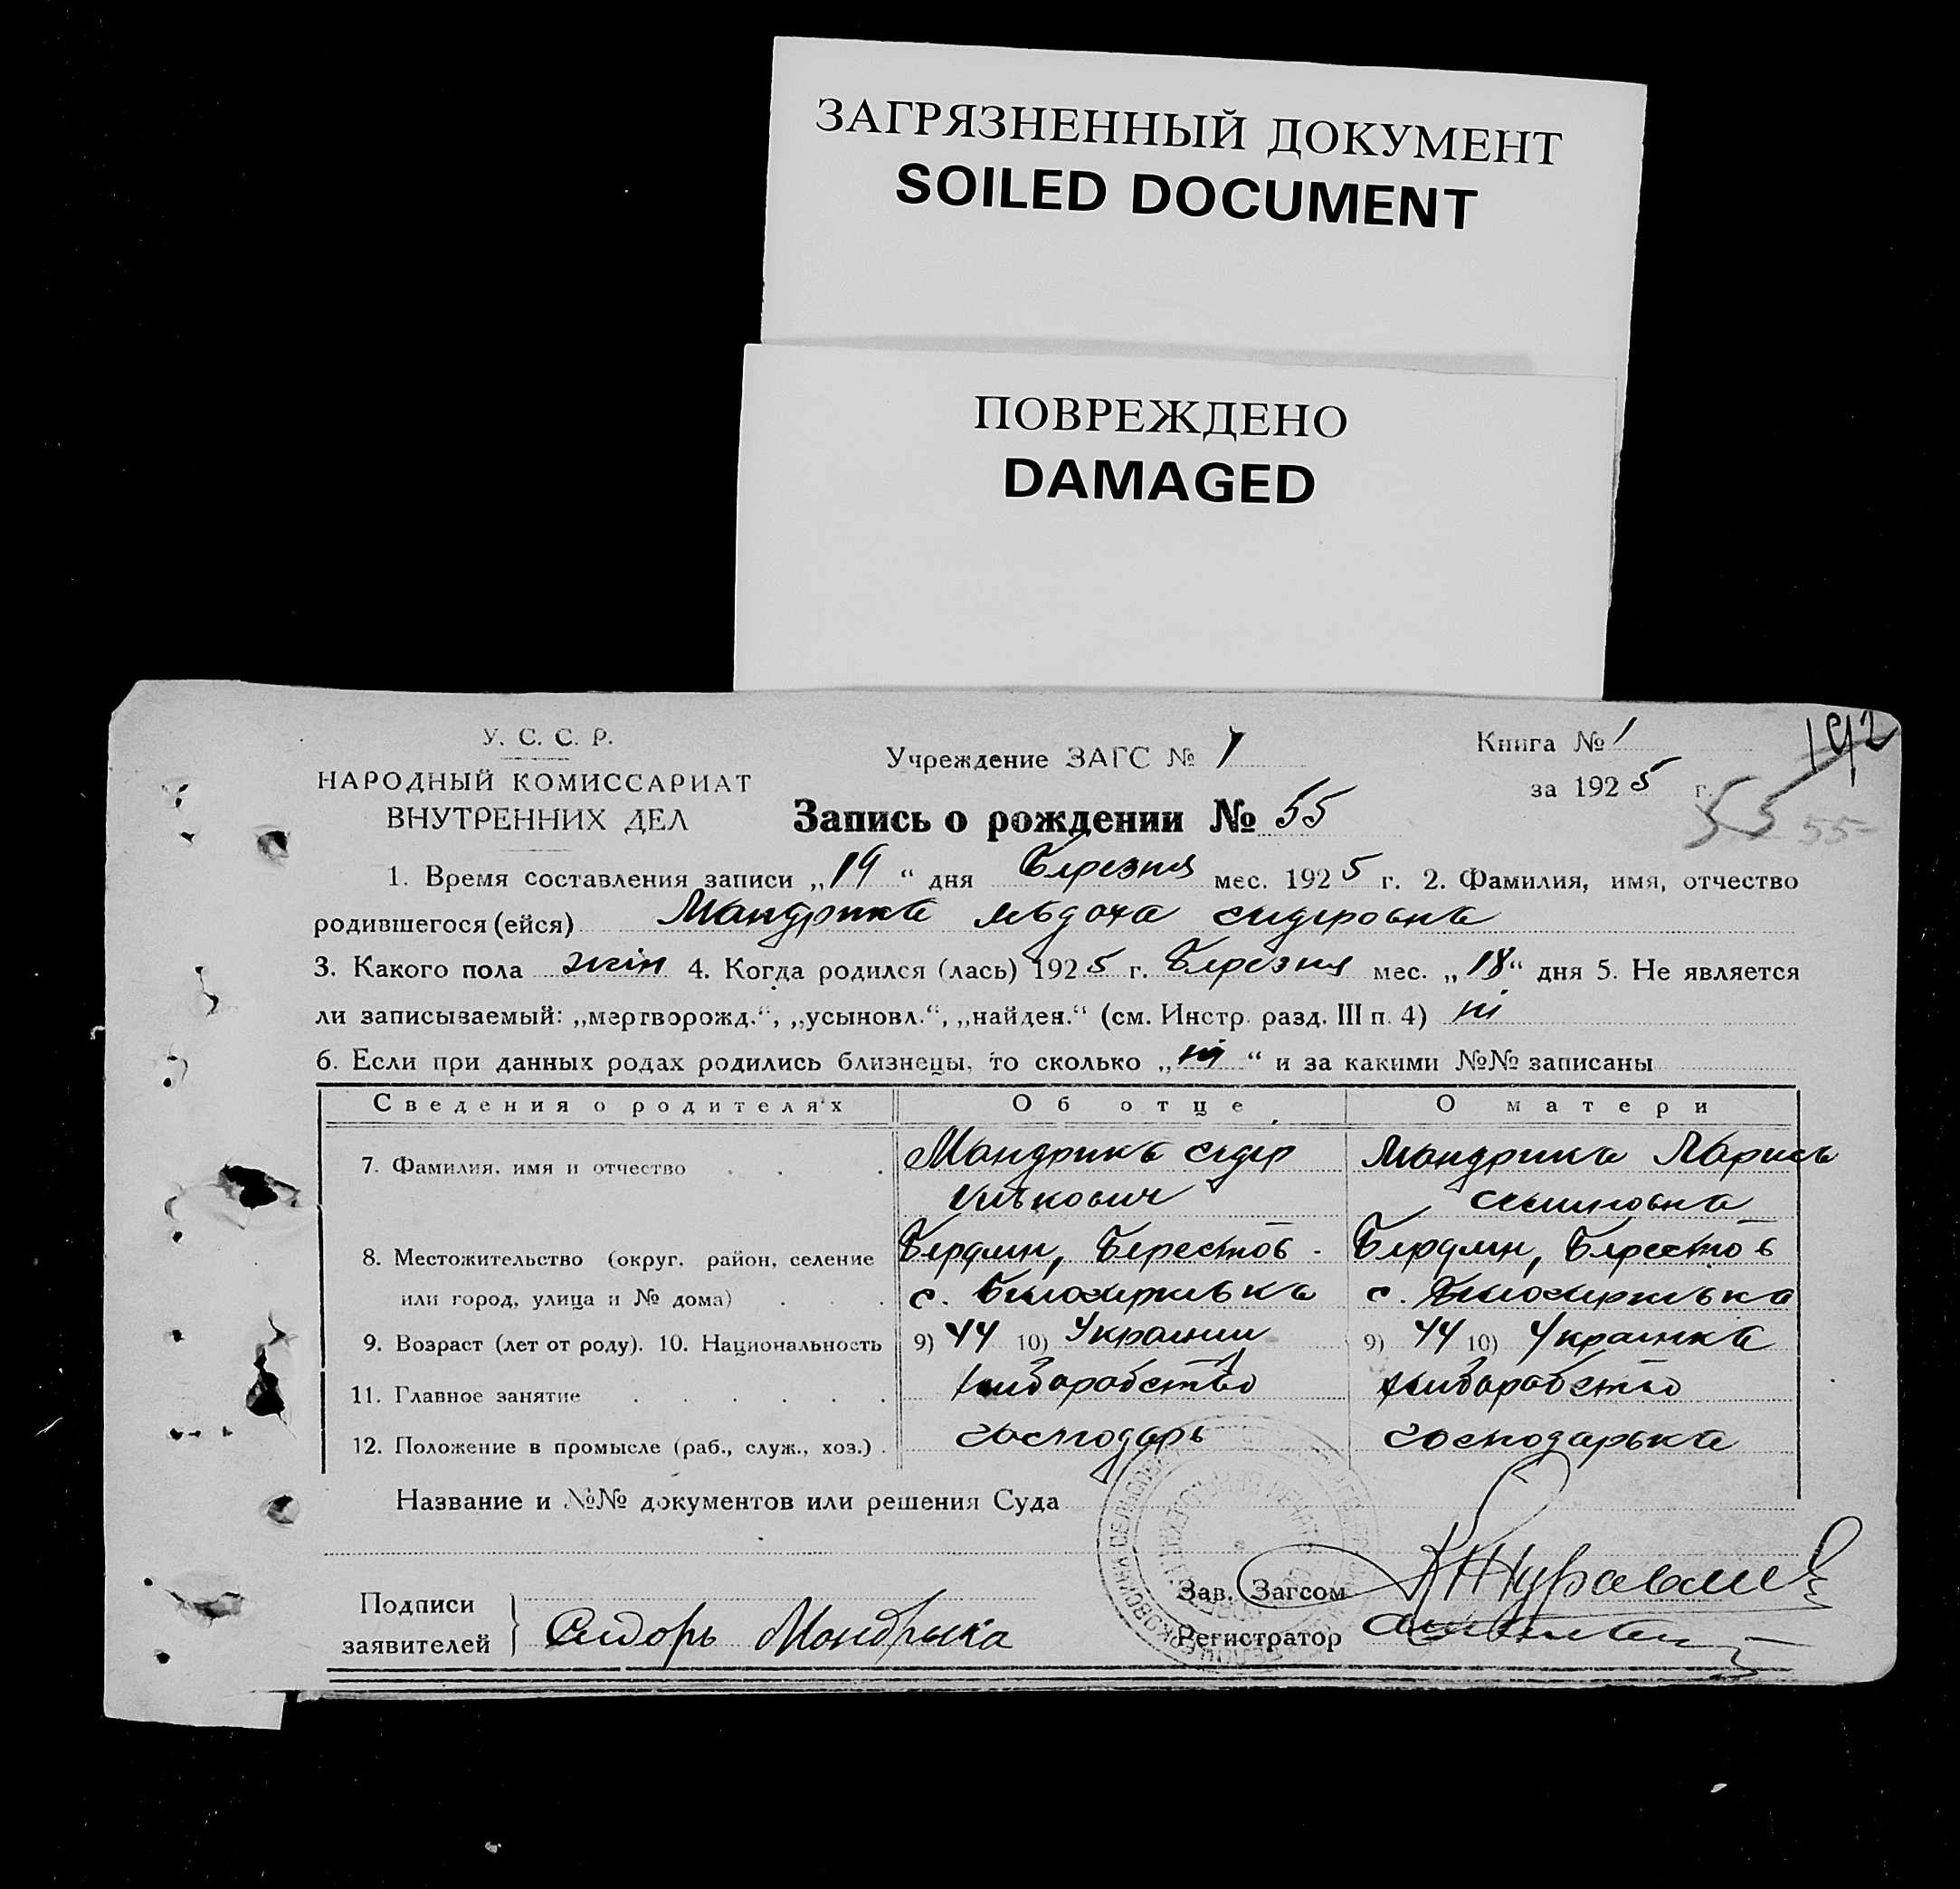 ЗАГРЯЗНЕННЫЙ ДОКУМЕНТ
SOILED DOCUMENT
ПОВРЕЖДЕНО
DAMAGED
192
У. С. С. Р.
НАРОДНЫЙ КОМИССАРИАТ
ВНУТРЕННИХ ДЕЛ
Учреждение ЗАГС № 1
Книга № 1
за 1925 г.
55 55
Запись о рождении № 55
1. Время составления записи „19“ дня Березня мес. 1925 г. 2. Фамилия, имя, отчество
родившегося (ейся) Мандрика Явдоха Сидеровна
3. Какого пола жін 4. Когда родился (лась) 1925 г. Березня мес. „18“ дня 5. Не является
ли записываемый: „мертворожд.“, „усыновл.“, „найден.“ (см. Инстр. разд. III п. 4) ні
6. Если при данных родах родились близнецы, то сколько „ні“ и за какими №№ записаны
Сведения о родителях Об отце О матери
7. Фамилия, имя и отчество Мандрика Сидер Мандрика
8. Местожительство (округ, район, селение Бердян, Берестов- Бердян, Берестов
или город, улица и № дома) с. с.
9. Возраст (лет от роду). 10. Национальность 9) 44 10) Украинец 9) 44 10) Украинка
11. Главное занятие хлиборобство хлиборобство
12. Положение в промысле (раб., служ., хоз.) господарь господарька
Название и №№ документов или решения Суда
Подписи
заявителей Сидорь Мандрыка
Зав. Загсом
Регистратор